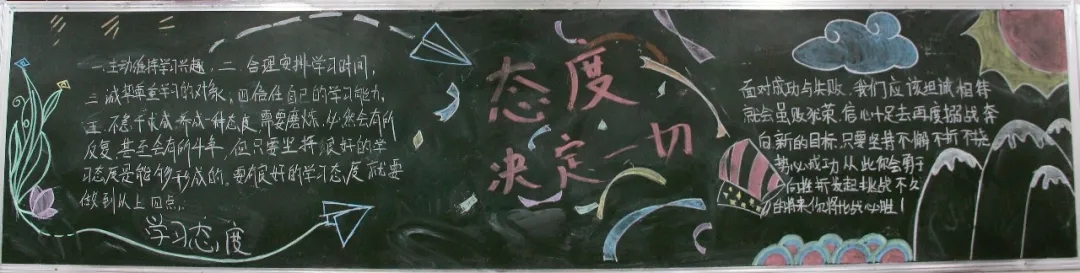 一.主动维持学习兴趣,二.合理安排学习时间,
三诚恳尊重学习的对象,四信任自己的学习能力,
五.不急于求成.养成一种态度,需要磨炼,必然会有所
反复,甚至会有所斗争,但只要坚持,良好的学
习态度是能够形成的。要有良好的学习态度就要
做到从上四点.
学习态度
态度
决定一切
面对成功与失败.我们应该坦诚相待
就会虽败犹荣.信心十足去再度挑战奔
向新的目标.只要坚持不懈不折不挠
势必成功从此你会勇于
向挫折发起挑战不久
的将来你将战必胜!